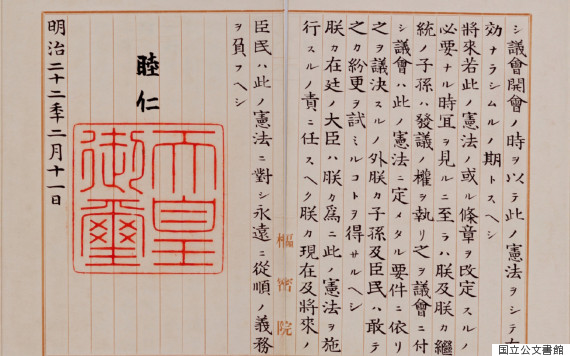 シ議會開會ノ時ヲ以テ此ノ憲法ヲシテ有
効ナラシムルノ期トスヘシ
將來若此ノ憲法ノ或ル條章ヲ改定スルノ
必要ナル時宜ヲ見ルニ至ラハ朕及朕カ繼
統ノ子孫ハ發議ノ權ヲ執リ之ヲ議會ニ付
シ議會ハ此ノ憲法ニ定メタル要件ニ依リ
之ヲ議決スルノ外朕カ子孫及臣民ハ敢テ
之カ紛更ヲ試ミルコトヲ得サルヘシ
朕カ在廷ノ大臣ハ朕カ爲ニ此ノ憲法ヲ施
行スルノ責ニ任スヘク朕カ現在及將來ノ
樞密院
臣民ハ此ノ憲法ニ對シ永遠ニ從順ノ義務
ヲ負フヘシ
睦仁
天皇
御璽
明治二十二年二月十一日
国立公文書館